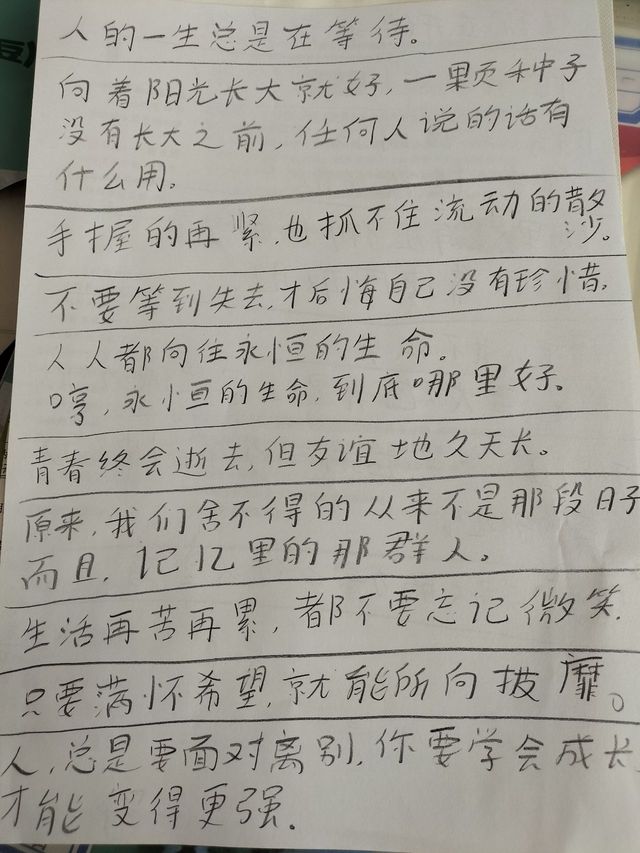 人的一生总是在等待。
向着阳光长大就好,一颗种子
没有长大之前,任何人说的话有
什么用。
手握的再紧,也抓不住流动的散
沙。
不要等到失去,才后悔自己没有珍惜,
人人都向往永恒的生命。
哼,永恒的生命,到底哪里好。
青春终会逝去,但友谊地久天长。
原来,我们舍不得的从来不是那段日子
而且,记忆里的那群人。
生活再苦再累,都不要忘记微笑.
只要满怀希望,就能所向披靡。
人,总是要面对离别,你要学会成长
才能变得更强.